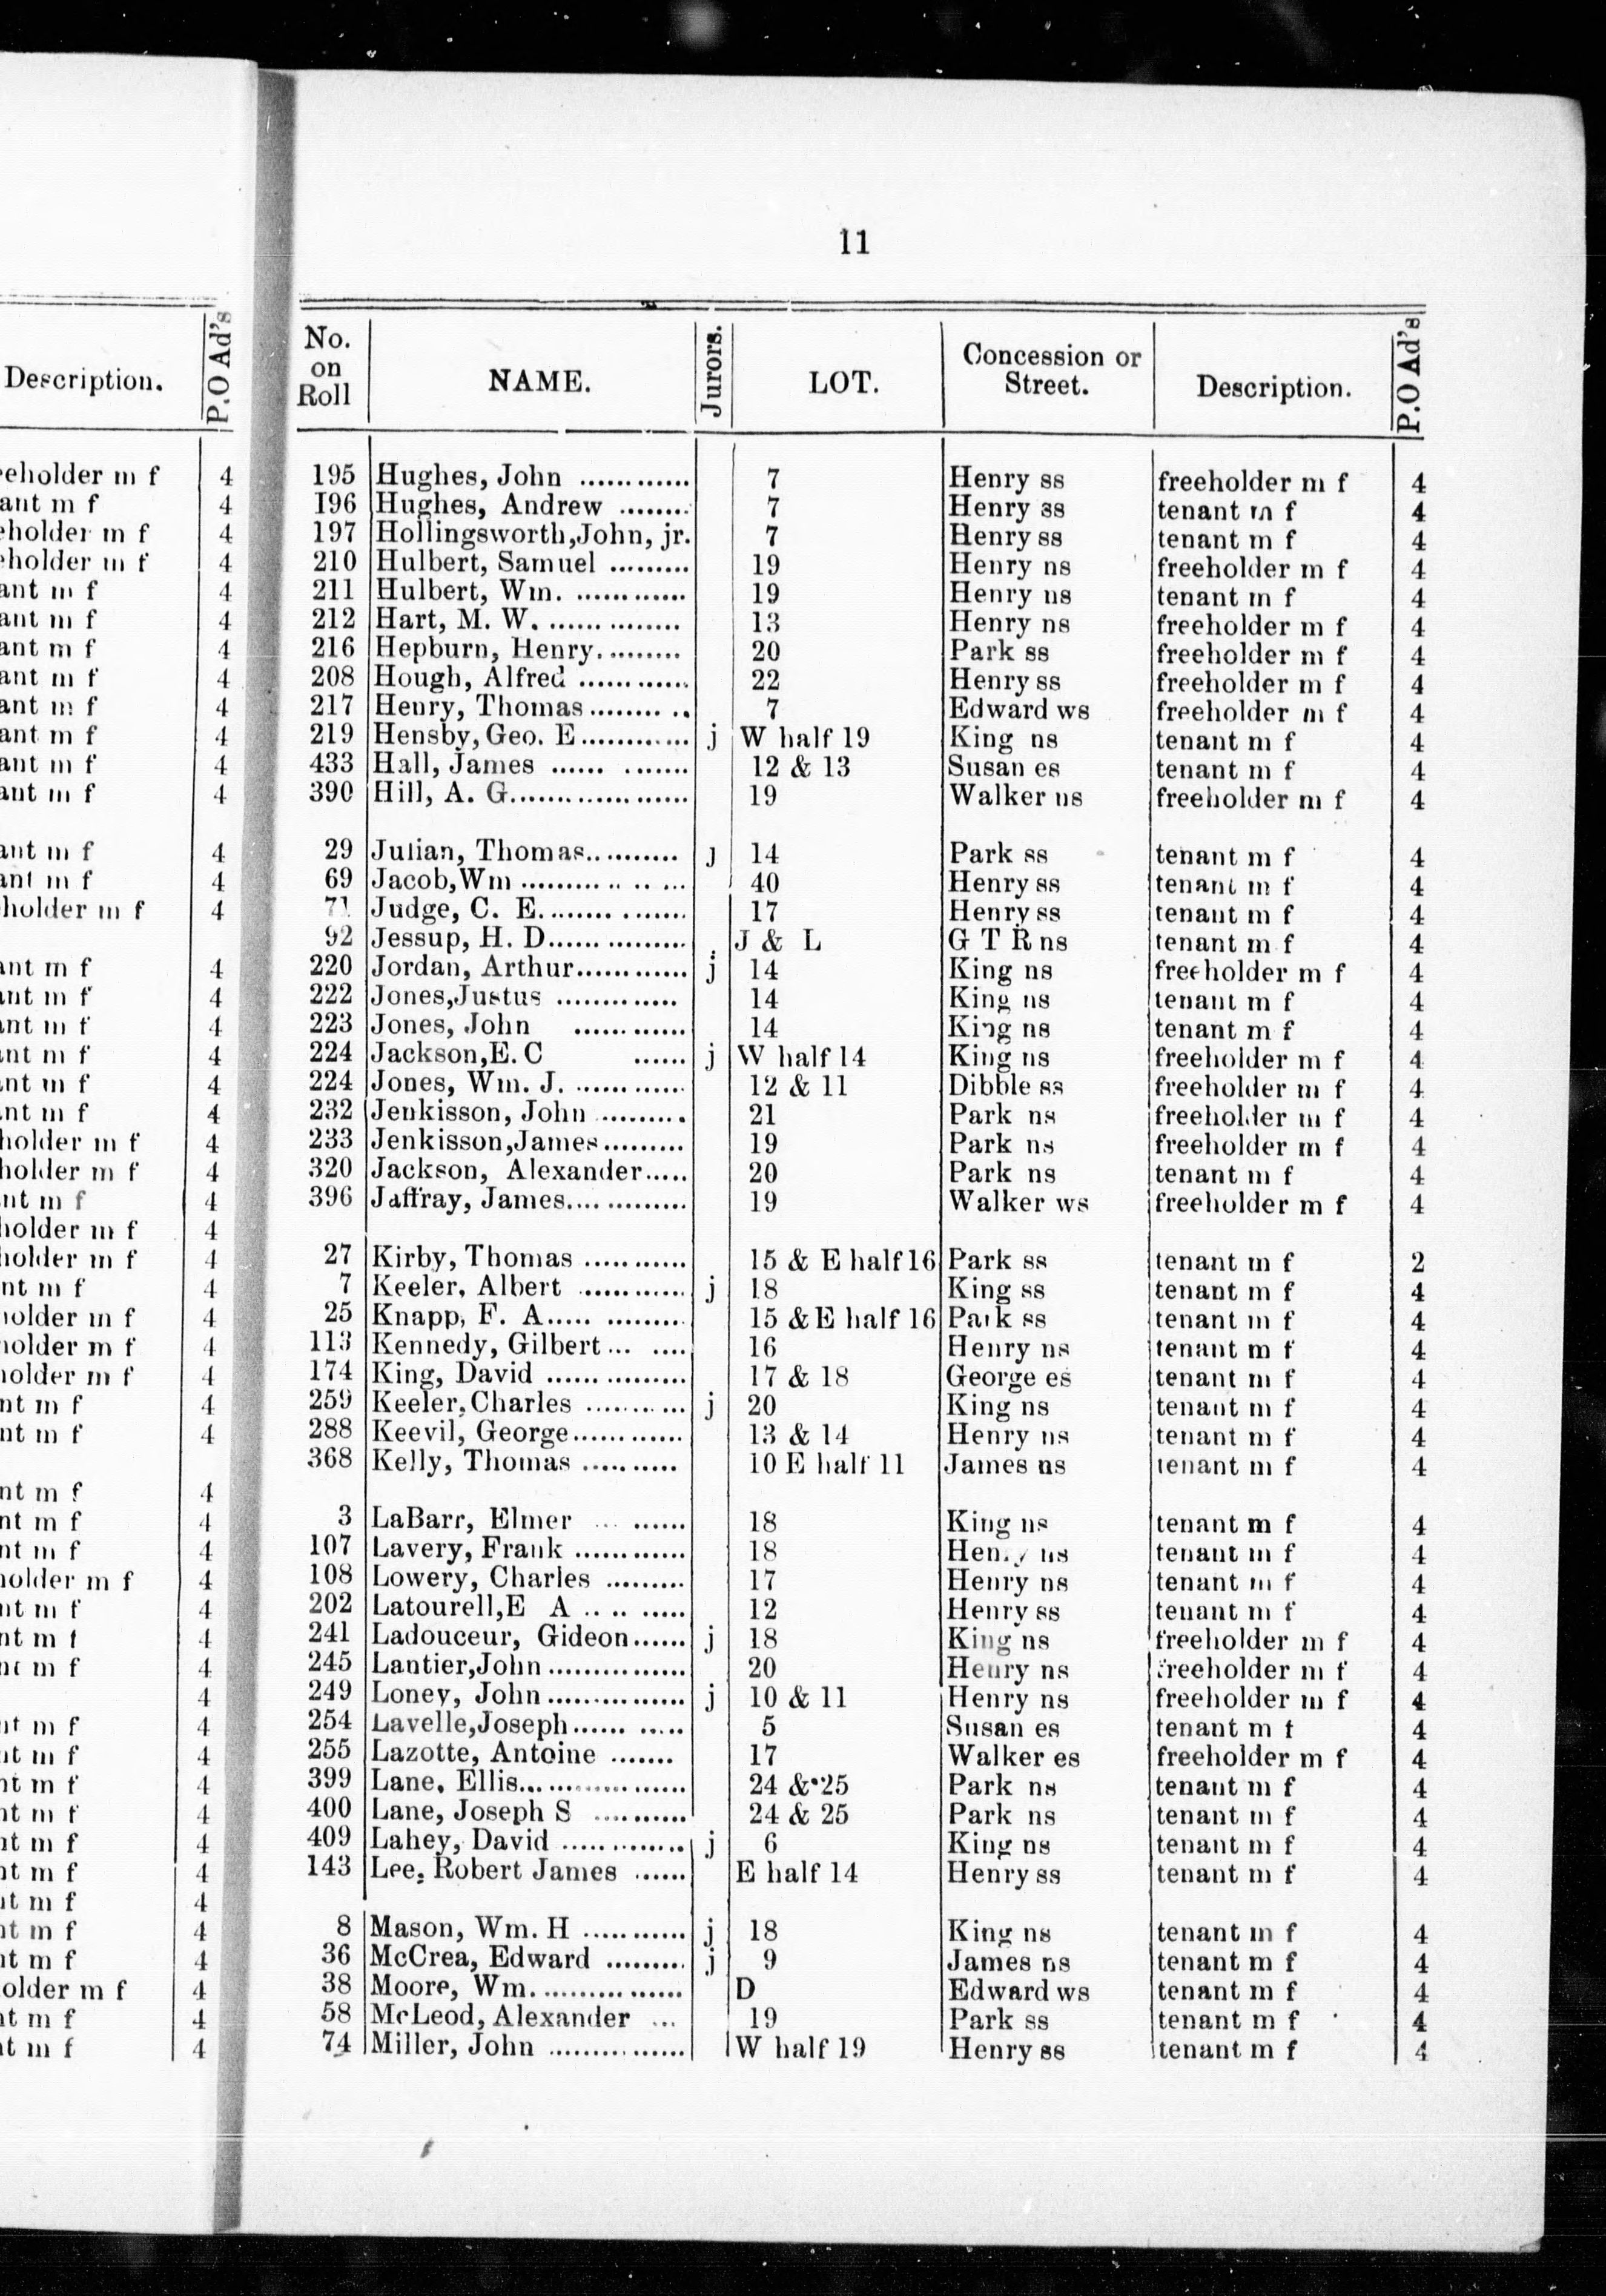 11
Description.
P.O Ad's
No. on Roll
NAME.
Jurors.
LOT.
Concession or Street.
Description.
P.O Ad's
eholder m f 4
ant m f 4
holder m f 4
holder m f 4
ant m f 4
ant m f 4
ant m f 4
ant m f 4
ant m f 4
ant m f 4
ant m f 4
ant m f 4
ant m f 4
ant m f 4
holder m f 4
ant m f 4
nt m f 4
nt m f 4
nt m f 4
nt m f 4
nt m f 4
holder m f 4
holder m f 4
nt m f 4
holder m f 4
holder m f 4
nt m f 4
holder m f 4
holder m f 4
holder m f 4
nt m f 4
nt m f 4
nt m f 4
nt m f 4
nt m f 4
holder m f 4
nt m f 4
nt m f 4
nt m f 4
4
nt m f 4
t m f 4
t m f 4
t m f 4
t m f 4
t m f 4
t m f 4
t m f 4
t m f 4
older m f 4
t m f 4
t m f 4
195 Hughes, John ............ 7 Henry ss freeholder m f 4
196 Hughes, Andrew ........ 7 Henry ss tenant m f 4
197 Hollingsworth,John, jr. 7 Henry ss tenant m f 4
210 Hulbert, Samuel ......... 19 Henry ns freeholder m f 4
211 Hulbert, Wm. ............ 19 Henry ns tenant m f 4
212 Hart, M. W. .............. 13 Henry ns freeholder m f 4
216 Hepburn, Henry......... 20 Park ss freeholder m f 4
208 Hough, Alfred ............ 22 Henry ss freeholder m f 4
217 Henry, Thomas........ .. 7 Edward ws freeholder m f 4
219 Hensby, Geo. E............ j W half 19 King ns tenant m f 4
433 Hall, James ...... ........ 12 & 13 Susan es tenant m f 4
390 Hill, A. G.................... 19 Walker ns freeholder m f 4
29 Julian, Thomas........... j 14 Park ss tenant m f 4
69 Jacob,Wm .......... .. .. ... 40 Henry ss tenant m f 4
71 Judge, C. E......... ....... 17 Henry ss tenant m f 4
92 Jessup, H. D...... ......... J & L G T R ns tenant m f 4
220 Jordan, Arthur............ j 14 King ns freeholder m f 4
222 Jones,Justus ............. 14 King ns tenant m f 4
223 Jones, John ............ 14 King ns tenant m f 4
224 Jackson,E. C ...... j W half 14 King ns freeholder m f 4
224 Jones, Wm. J. ............ 12 & 11 Dibble ss freeholder m f 4
232 Jenkisson, John .......... 21 Park ns freeholder m f 4
233 Jenkisson,James......... 19 Park ns freeholder m f 4
320 Jackson, Alexander..... 20 Park ns tenant m f 4
396 Jaffray, James............. 19 Walker ws freeholder m f 4
27 Kirby, Thomas ........... 15 & E half 16 Park ss tenant m f 2
7 Keeler, Albert ............ j 18 King ss tenant m f 4
25 Knapp, F. A..... ......... 15 & E half 16 Park ss tenant m f 4
113 Kennedy, Gilbert... .... 16 Henry ns tenant m f 4
174 King, David ............... 17 & 18 George es tenant m f 4
259 Keeler, Charles ........... j 20 King ns tenant m f 4
288 Keevil, George............ 13 & 14 Henry ns tenant m f 4
368 Kelly, Thomas .......... 10 E half 11 James ns tenant m f 4
3 LaBarr, Elmer ... ...... 18 King ns tenant m f 4
107 Lavery, Frank ............ 18 Henry ns tenant m f 4
108 Lowery, Charles ......... 17 Henry ns tenant m f 4
202 Latourell,E A .. .. ...... 12 Henry ss tenant m f 4
241 Ladouceur, Gideon...... j 18 King ns freeholder m f 4
245 Lantier,John ............... 20 Henry ns freeholder m f 4
249 Loney, John............... j 10 & 11 Henry ns freeholder m f 4
254 Lavelle,Joseph...... ..... 5 Susan es tenant m f 4
255 Lazotte, Antoine ....... 17 Walker es freeholder m f 4
399 Lane, Ellis.................. 24 & 25 Park ns tenant m f 4
400 Lane, Joseph S .......... 24 & 25 Park ns tenant m f 4
409 Lahey, David ............. j 6 King ns tenant m f 4
143 Lee, Robert James ...... E half 14 Henry ss tenant m f 4
8 Mason, Wm. H ............ j 18 King ns tenant m f 4
36 McCrea, Edward ......... j 9 James ns tenant m f 4
38 Moore, Wm................. D Edward ws tenant m f 4
58 McLeod, Alexander ... 19 Park ss tenant m f 4
74 Miller, John ............... W half 19 Henry ss tenant m f 4